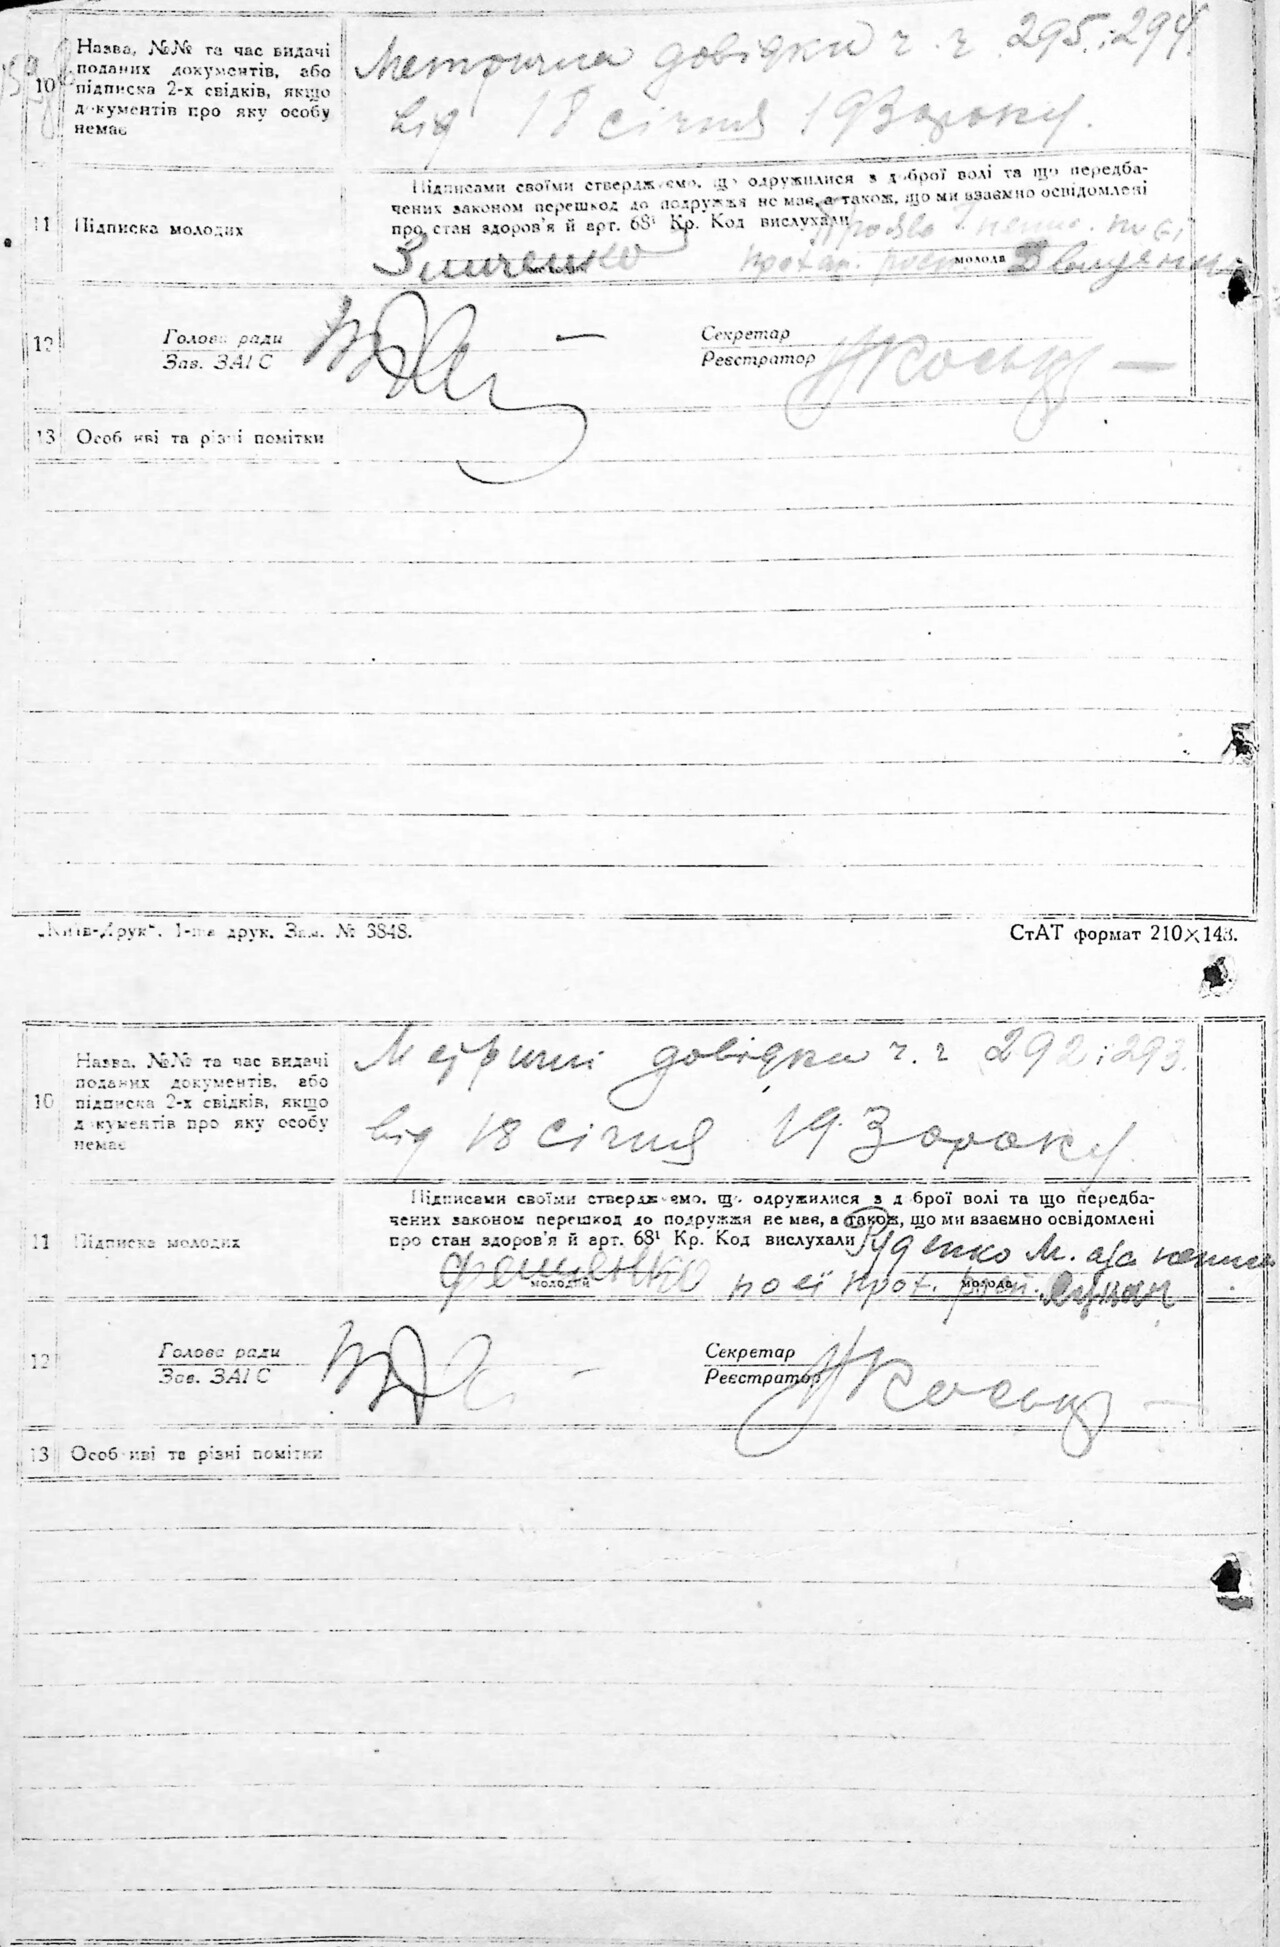 10 Назва, №№ та час видачі
поданих документів, або
підписка 2-х свідків, якщо
документів про яку особу
немає
Метрична довідки ч. ч. 295 і 294.
від 18 січня 193 року.
11 Підписка молодих
Підписами своїми стверджуємо, що одружилися з доброї волі та що передба-
чених законом перешкод до подружжя не має, а також, що ми взаємно освідомлені
про стан здоров'я й арт. 68¹ Кр. Код вислухали
Зінченко
молодий
молода
12 Голова ради
Зав. ЗАГС
Секретар
Реєстратор
13 Особливі та різні помітки
„Київ-Друк". 1-ша друк. Зам. № 3848.
СтАТ формат 210×148.
10 Назва, №№ та час видачі
поданих документів, або
підписка 2-х свідків, якщо
документів про яку особу
немає
Метричні довідки ч. ч 292 і 293.
від 18 січня 193 року.
11 Підписка молодих
Підписами своїми стверджуємо, що одружилися з доброї волі та що передба-
чених законом перешкод до подружжя не має, а також, що ми взаємно освідомлені
про стан здоров'я й арт. 68¹ Кр. Код вислухали Руденко М.
по її прох.
молодий
молода
12 Голова ради
Зав. ЗАГС
Секретар
Реєстратор
13 Особливі та різні помітки